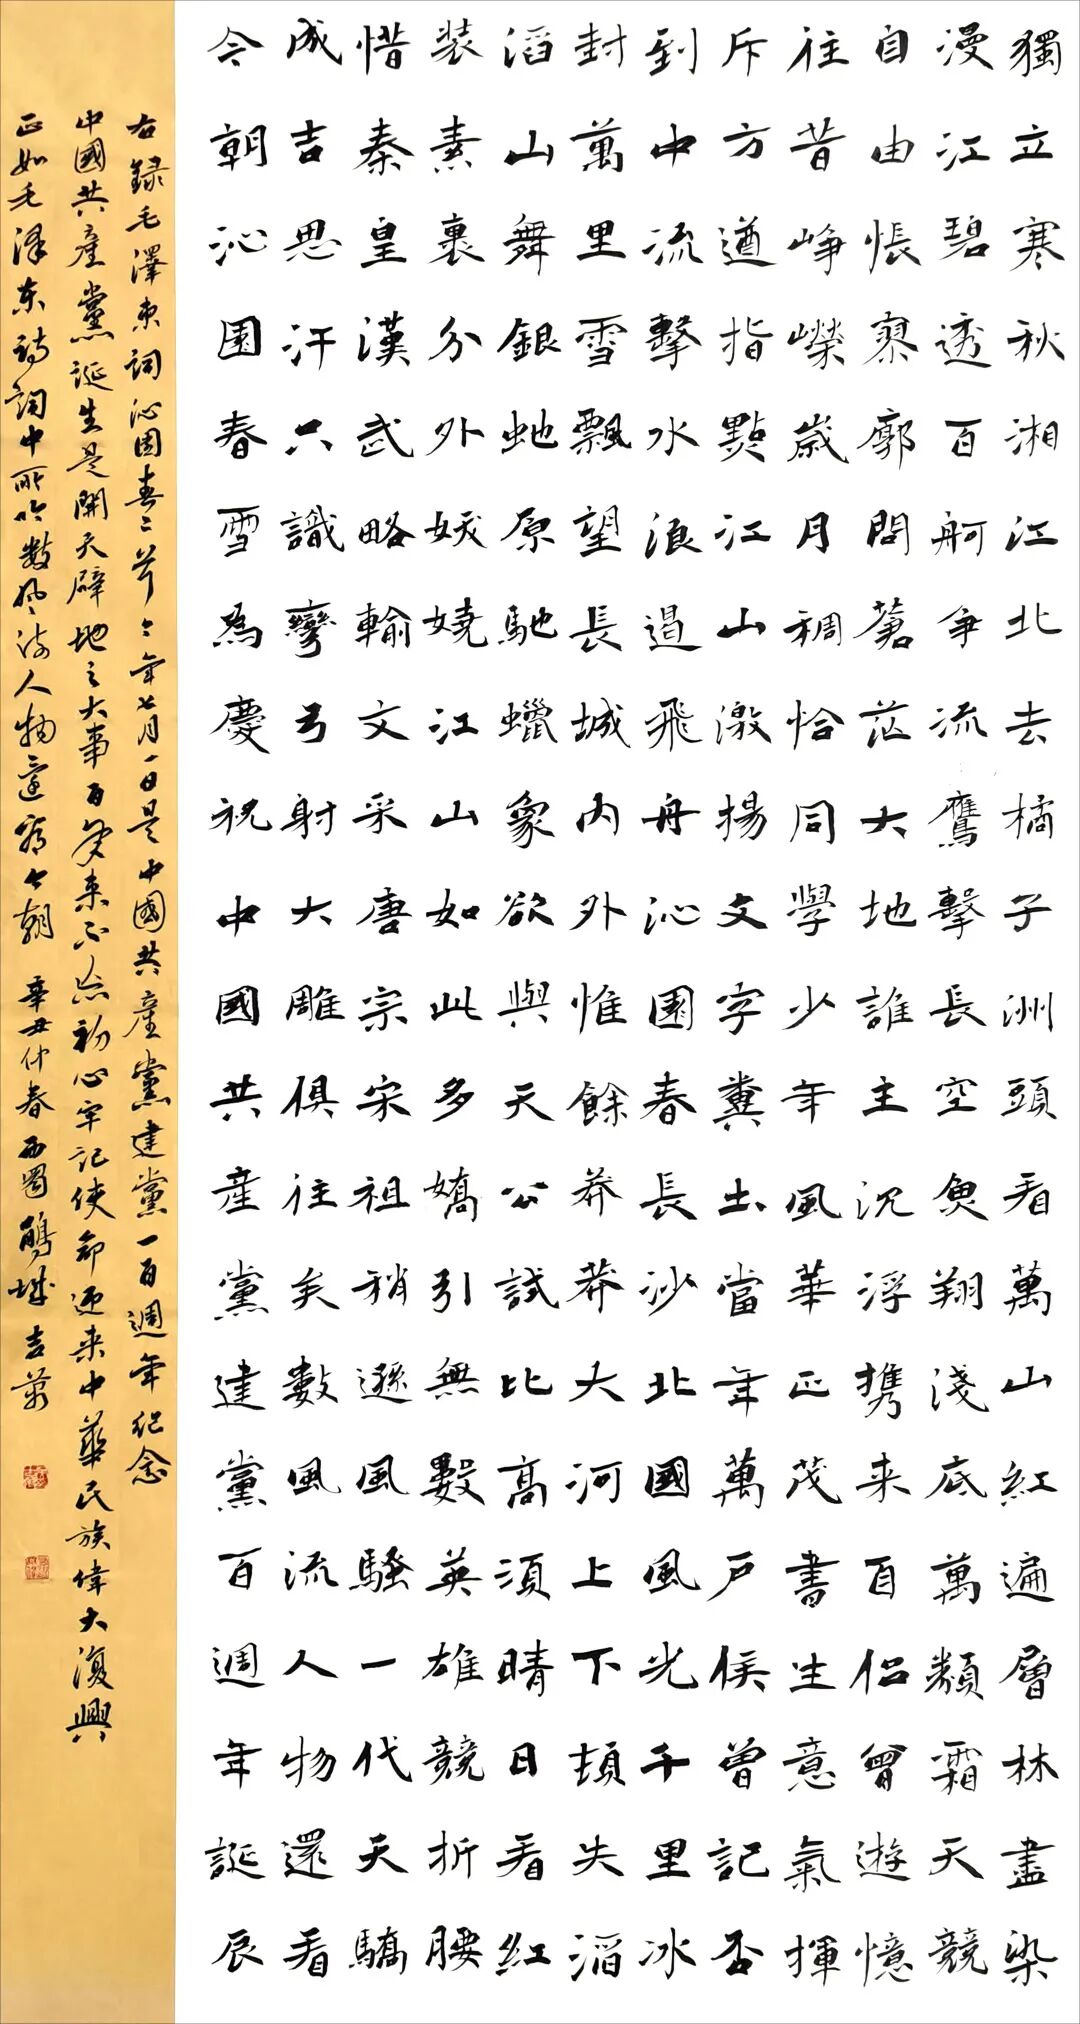 獨立寒秋湘江北去橘子洲頭看萬山紅遍層林盡染
漫江碧透百舸争流鷹擊長空魚翔淺底萬類霜天競
自由悵寥廓問蒼茫大地誰主沉浮携来百侣曾遊憶
往昔崢嶸歲月稠恰同學少年風華正茂書生意氣揮
斥方遒指點江山激揚文字糞土當年萬户侯曾記否
到中流擊水浪遏飛舟沁園春長沙北國風光千里冰
封萬里雪飄望長城内外惟餘莽莽大河上下頓失滔
滔山舞銀蛇原馳蠟象欲與天公試比高須晴日看紅
装素裹分外妖嬈江山如此多嬌引無數英雄競折腰
惜秦皇漢武略輸文采唐宗宋祖稍遜風騷一代天驕
成吉思汗只識彎弓射大雕俱往矣數風流人物還看
今朝沁園春雪為慶祝中國共産黨建黨百週年誕辰
右録毛澤東詞沁園春二首今年七月一日是中國共産黨建黨一百週年紀念
中國共産黨誕生是開天辟地之大事百年来不忘初心牢記使命迎来中華民族偉大復興
正如毛澤東詩詞中所吟數風流人物還看今朝 辛丑仲春西蜀鵑城吉萬